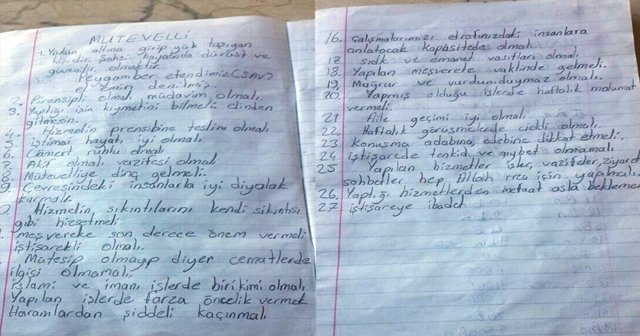 MÜTEVELLİ
1. Yükün altına girip yük taşıyan
kişidir. Şahsi hayatında dürüst ve
güvenilir olmaktır.
Peygamber efendimize (SAV)
el emin denilmiş
2. Pirensipli olmalı müdavim olmalı,
3. Yaptığı işin kıymetini bilmeli dinden
gitmesin.
4. Hizmetin prensibine teslim olmalı
5. içtimai hayatı iyi olmalı
6. Cömert ruhlu olmalı
olmalı vazifesi olmalı
8 Mütevelliye dinç gelmeli.
9 Çevresindeki insanlarla iyi diyolak
kurmalı.
0 Hizmetin sıkıntılarını kendi sıkıntısı
gibi hissetmeli
meşverete son derece önem vermeli
istişareli olmalı.
Mütesip olmayıp diyer cematlerde
ilgisi olmamalı.
islami ve imanı işlerde birikimi olmalı
Yapılan işlerde farza öncelik vermek
Haramlardan şiddetli kaçınmalı
16. Çalışmalarımızı etrafınızdaki insanlara
anlatacak kapasitede olmalı.
17 sıdk ve emanet vasıfları olmalı
18. Yapılan meşverete vaktinde gelmeli.
19 Mağrur ve vurdumduymaz olmalı.
20. Yapmış olduğu işlerde haftalık malumat
vermeli.
21 Aile geçimi iyi olmalı
22 Haftalık görüşmelerde ciddi olmalı.
23 Konuşma adabına, edebine dikkat etmeli,
24 istişarede tenkid ve gıybet olmamalı
25 Yapılan hizmetler işler, vazifeler, ziyaret
sohbetler hep Allah rızası için yapılmalı.
26. Yaptığı hizmetlerden menfaat asla beklememe
27 istişareye ibadet